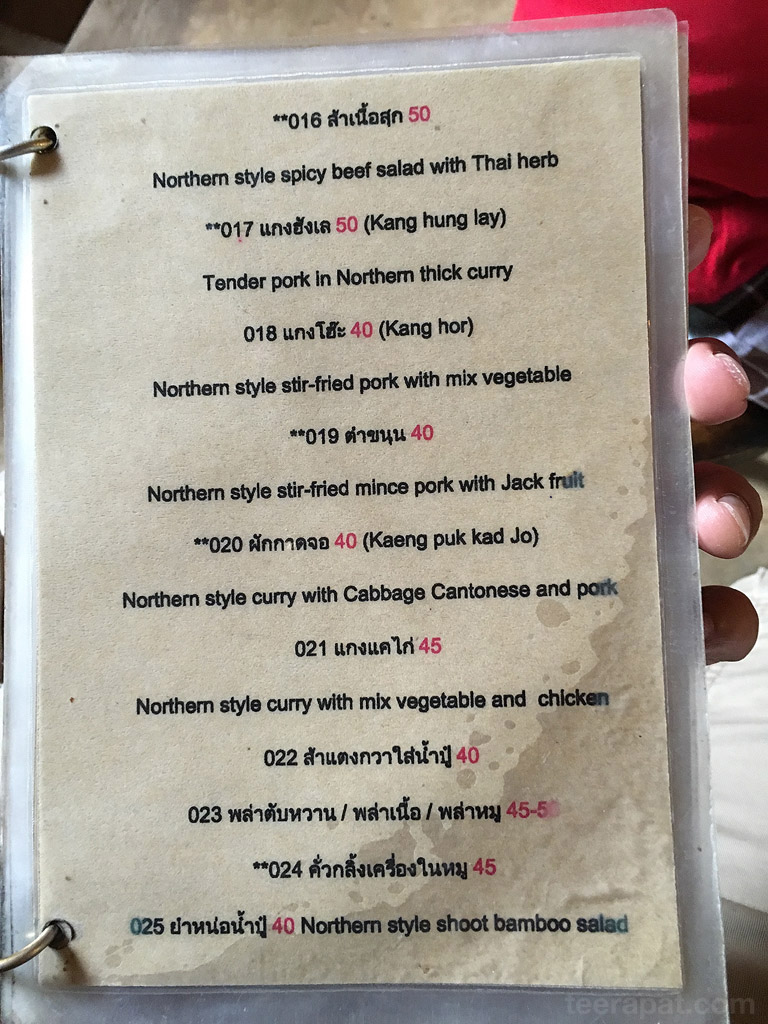 **016 ส้าเนื้อสุก 50
Northern style spicy beef salad with Thai herb
**017 แกงฮังเล 50 (Kang hung lay)
Tender pork in Northern thick curry
018 แกงโฮ๊ะ 40 (Kang hor)
Northern style stir-fried pork with mix vegetable
**019 ตำขนุน 40
Northern style stir-fried mince pork with Jack fruit
**020 ผักกาดจอ 40 (Kaeng puk kad Jo)
Northern style curry with Cabbage Cantonese and pork
021 แกงแคไก่ 45
Northern style curry with mix vegetable and chicken
022 ส้าแตงกวาใส่น้ำปู๋ 40
023 พล่าตับหวาน / พล่าเนื้อ / พล่าหมู
**024 คั่วกลิ้งเครื่องในหมู 45
025 ยำหน่อน้ำปู๋ 40 Northern style shoot bamboo salad
teerapat.com